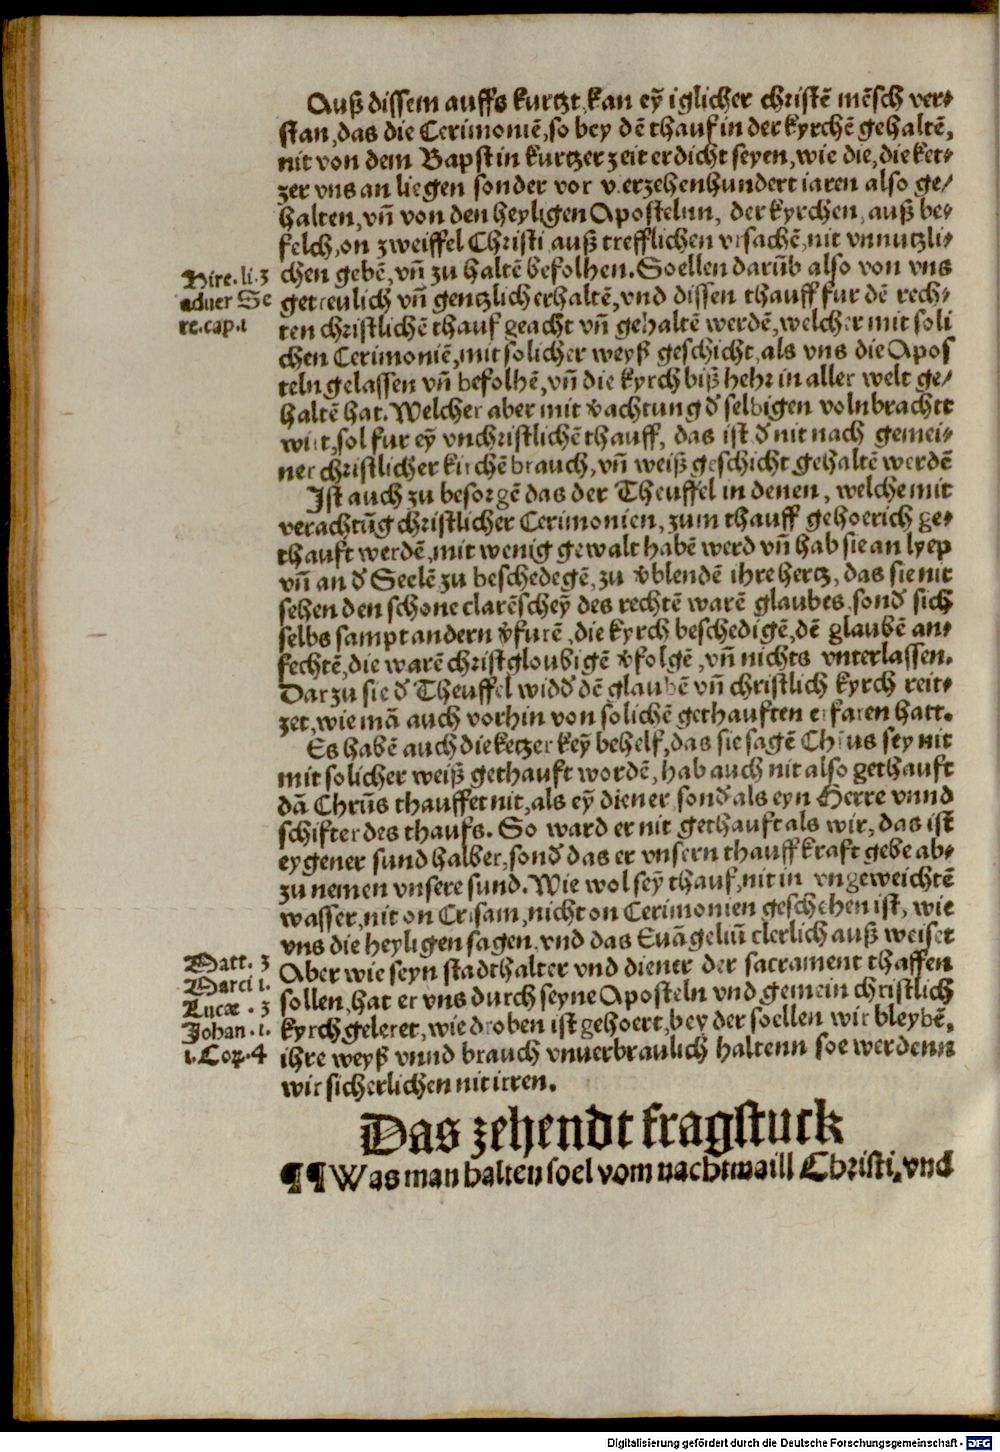 Auß dissem auffs kurtzt kan eỹ iglicher christẽ mẽsch ver⸗
stan, das die Cerimoniẽ, so bey dẽ thauf in der kyrchẽ gehaltẽ,
nit von dem Bapst in kurtzer zeit erdicht seyen, wie die, die ket⸗
zer vns an liegen sonder vor v.erzehenhundert iaren also ge⸗
halten, vñ von den heyligen Apostelnn, der kyrchen, auß be⸗
felch, on zweiffel Christi auß trefflichen vrsachẽ, nit vnnutzli⸗
Hire. li. 3
chen gebẽ, vñ zu haltẽ befolhen. Soellen darũb also von vns
aduer Se
getreulich vñ gentzlich erhaltẽ, vnd dissen thauff fur dẽ rech⸗
re. cap. 1
ten christlichẽ thauf geacht vñ gehaltẽ werdẽ, welcher mit soli
chen Cerimoniẽ, mit solicher weyß geschicht, als vns die Apos
teln gelassen vñ befolhẽ, vñ die kyrch biß hehr in aller welt ge⸗
haltẽ hat. Welcher aber mit v̾achtung d̾ selbigen volnbracht
wirt, sol fur eỹ vnchristlichẽ thauff, das ist d̾ nit nach gemei⸗
ner christlicher kirchẽ brauch, vñ weiß geschicht gehaltẽ werdẽ
Ist auch zu besorgẽ das der Theuffel in denen, welche mit
verachtũg christlicher Cerimonien, zum thauff gehoerich ge⸗
thauft werdẽ, mit wenig gewalt habẽ werd vñ hab sie an lyep
vñ an d̾ Seelẽ zu beschedegẽ, zu v̾blendẽ ihre hertz, das sie nit
sehen den schone clarẽ scheỹ des rechtẽ warẽ glaubes, sond̾ sich
selbs sampt andern v̾furẽ, die kyrch beschedigẽ, dẽ glaubẽ an⸗
fechtẽ, die warẽ christgloubigẽ v̾folgẽ, vñ nichts vnterlassen.
Dar zu sie d̾ Theuffel widd̾ dẽ glaubẽ vñ christlich kyrch reit⸗
zet, wie mã auch vorhin von solichẽ gethauften erfaren hatt.
Es habẽ auch die ketzer keỹ behelf, das sie sagẽ Chrũs sey nit
mit solicher weiß gethauft wordẽ, hab auch nit also gethauft
dã Chrũs thauffet nit, als eỹ diener, sond̾ als eyn Herre vnnd
schifter des thaufs. So ward er nit gethauft als wir, das ist
eygener sund halber, sond̾ das er vnsern thauff kraft gebe ab⸗
zu nemen vnsere sund. Wie wol seỹ thauf, nit in vngeweichtẽ
wasser, nit on Crisam, nicht on Cerimonien geschehen ist, wie
vns die heyligen sagen, vnd das Euãgeliũ clerlich auß weiset
Matt. 3
Aber wie seyn stadthalter vnd diener der sacrament thaffen
Marci 1.
sollen, hat er vns durch seyne Aposteln vnd gemein christlich
Lucæ . 3
kyrch geleret, wie droben ist gehoert, bey der soellen wir bleybẽ,
Johan . 1.
ihre weyß vnnd brauch vnuerbraulich haltenn soe werdenn
1. Cor. 4
wir sicherlichen nit irren.
Das zehendt fragstuck
¶¶ Was man halten soel vom nachtmaill Christi, vnd
Digitalisierung gefördert durch die Deutsche Forschungsgemeinschaft - DFG